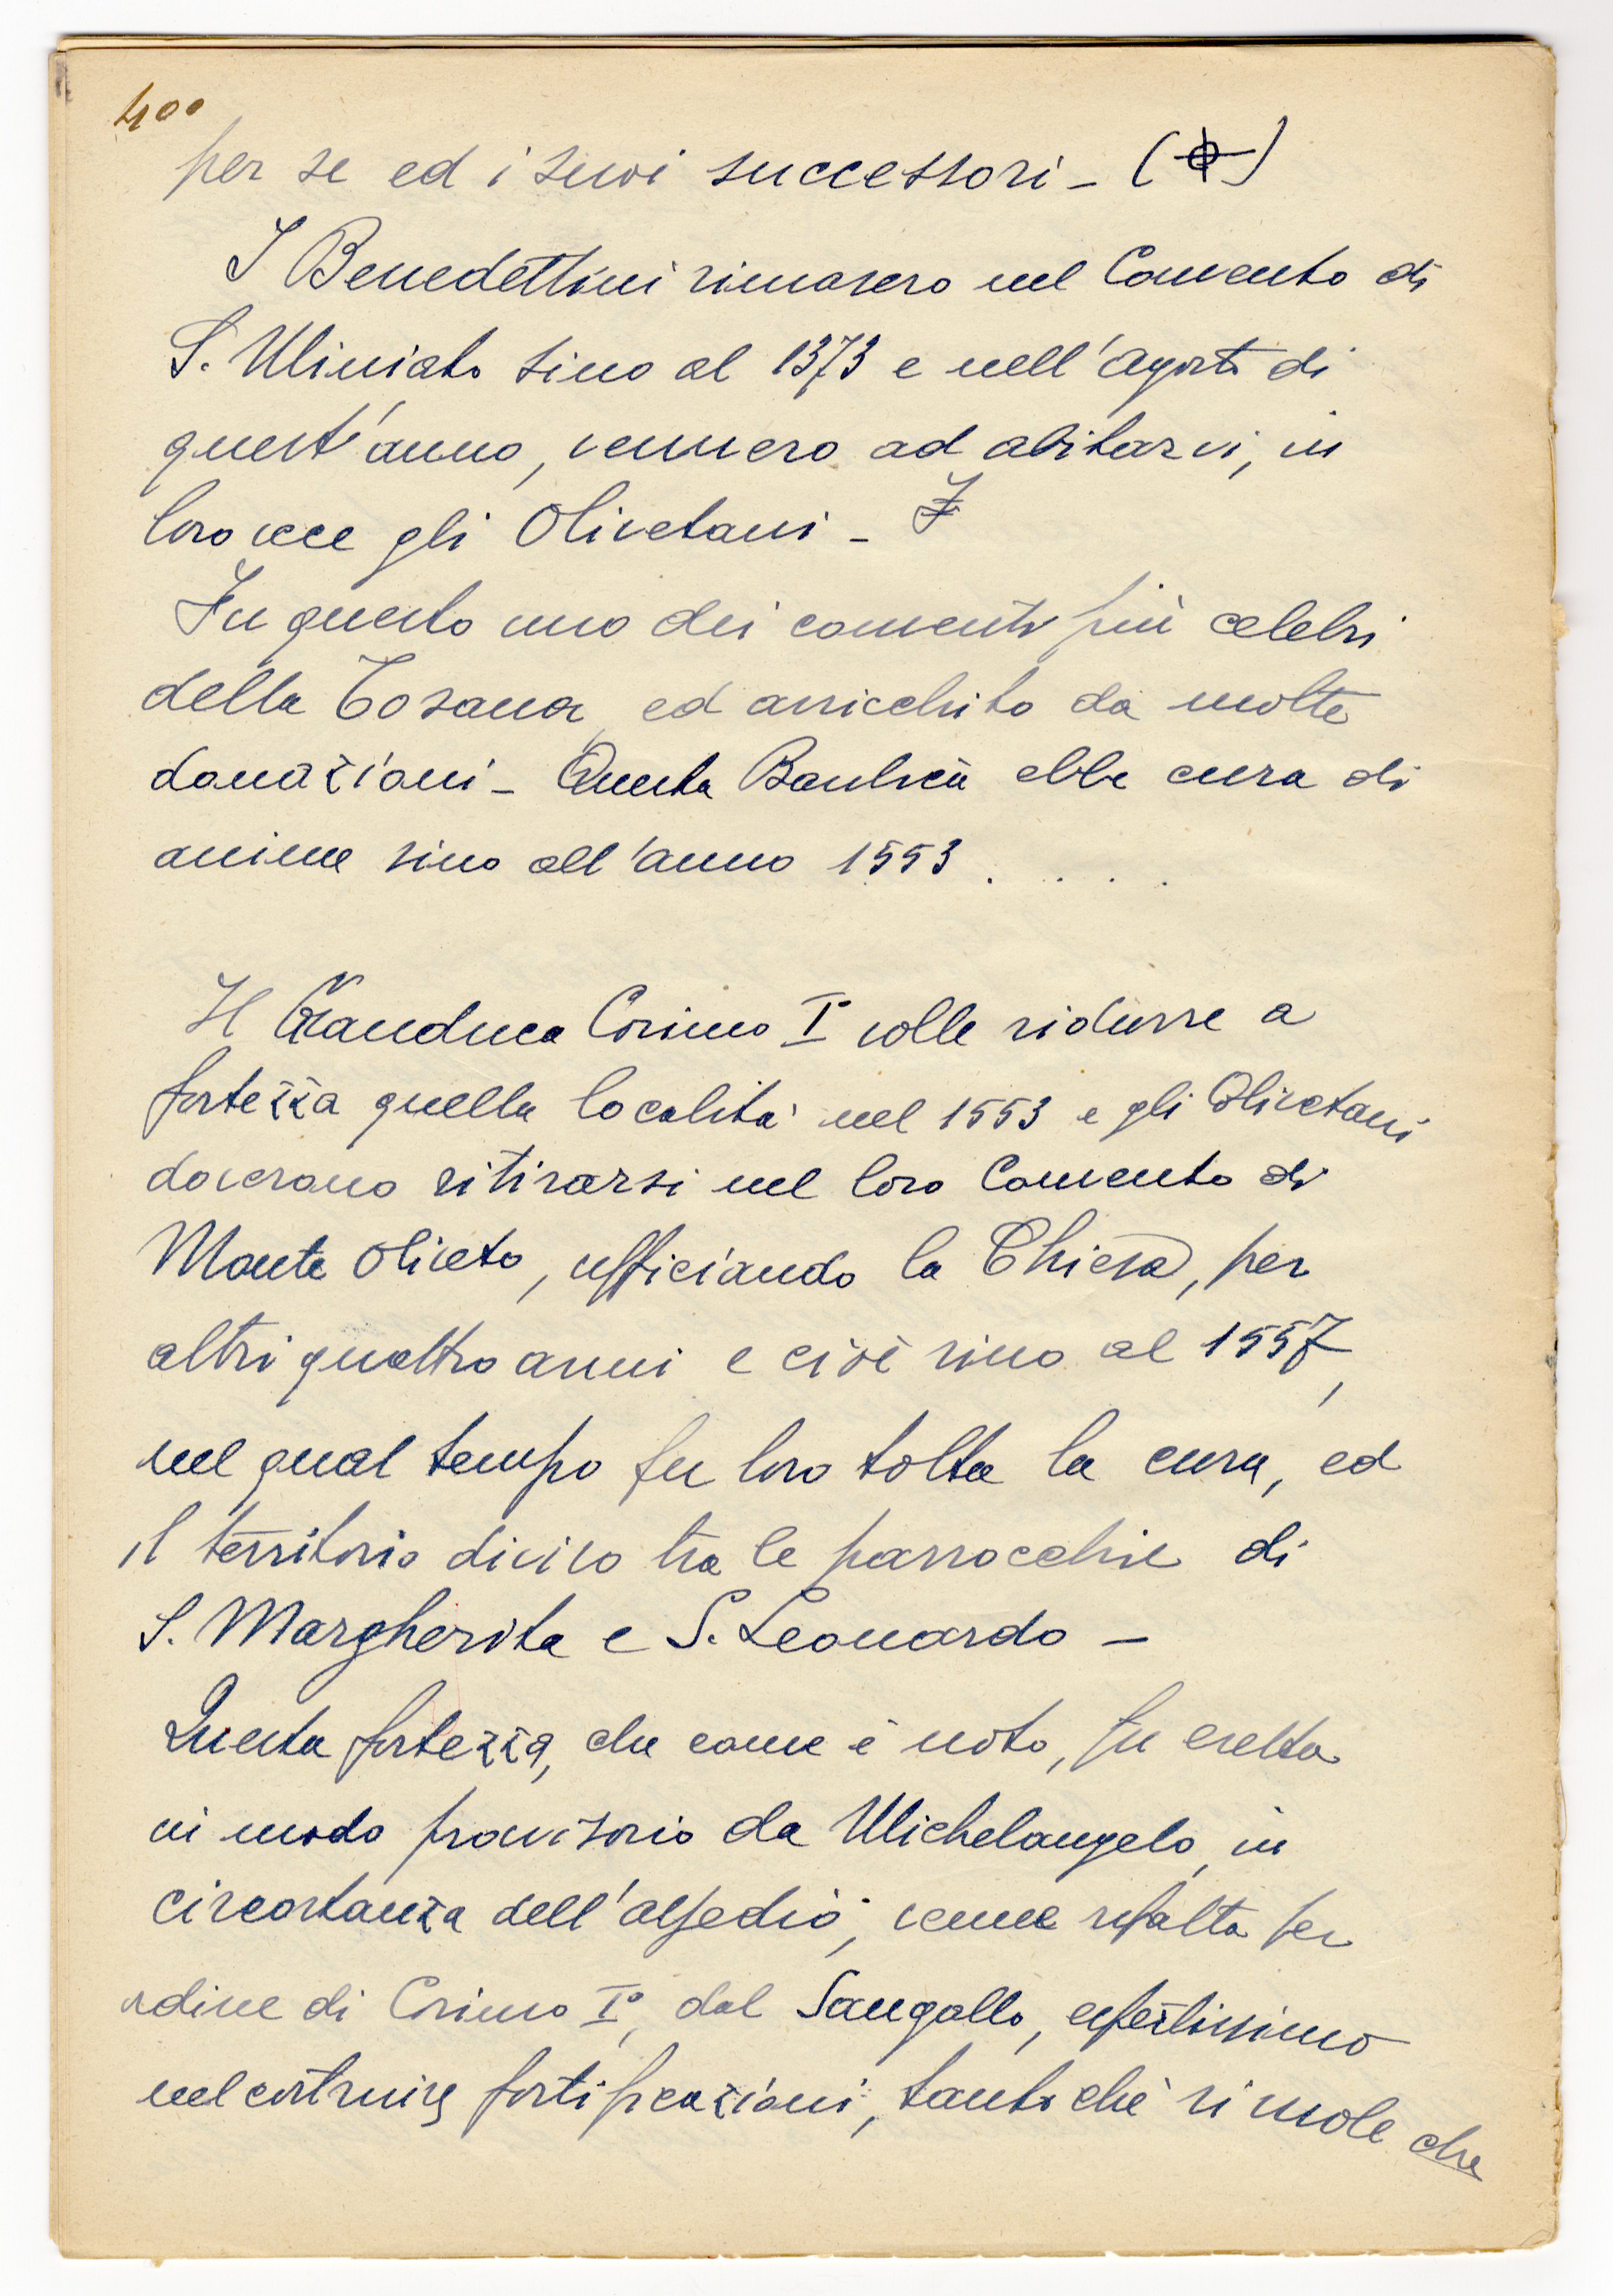 400
per se ed i suoi successori - (φ)
I Benedettini rimasero nel Convento di
S. Miniato sino al 1373 e nell'Agosto di
quest'anno, vennero ad abitarvi, in
loro vece gli Olivetani -
Fu questo uno dei conventi più celebri
della Tosana, ed arricchito da molte
donazioni - Questa Basilica ebbe cura di
anime sino all'anno 1553 . . . .
Il Granduca Cosimo I° volle ridurre a
fortezza quella località nel 1553 e gli Olivetani
doverono ritirarsi nel loro Convento di
Monte Oliveto, ufficiando la Chiesa, per
altri quattro anni e cioè sino al 1557,
nel qual tempo fu loro tolta la cura, ed
il territorio diviso tra le parrocchie di
S. Margherita e S. Leonardo -
Questa fortezza, che come è noto, fu eretta
in modo provvisorio da Michelangelo, in
circostanza dell'assedio, venne rifatta per
ordine di Cosimo I°, dal Sangallo, espertissimo
nel costruire fortificazioni, tanto chè si vuole che